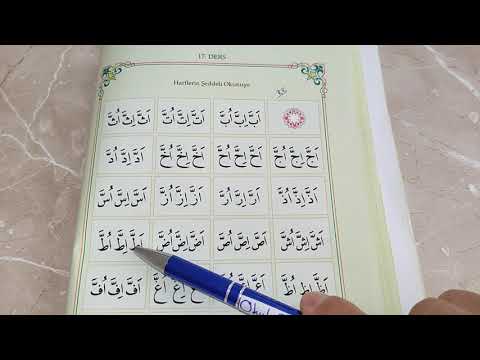 17. DERS
Harflerin Şeddeli Okunuşu
اَبَّ اِبَّ اُبَّ اَتَّ اِتَّ اُتَّ اَثَّ اِثَّ اُثَّ
اَجَّ اِجَّ اُجَّ اَحَّ اِحَّ اُحَّ اَخَّ اِخَّ اُخَّ اَدَّ اِدَّ اُدَّ
اَذَّ اِذَّ اُذَّ اَرَّ اِرَّ اُرَّ اَزَّ اِزَّ اُزَّ اَسَّ اِسَّ اُسَّ
اَشَّ اِشَّ اُشَّ اَصَّ اِصَّ اُصَّ اَضَّ اِضَّ اُضَّ اَطَّ اِطَّ اُطَّ
اَظَّ اِظَّ اُظَّ اَعَّ اِعَّ اَغَّ اِغَّ اَفَّ اِفَّ اُفَّ